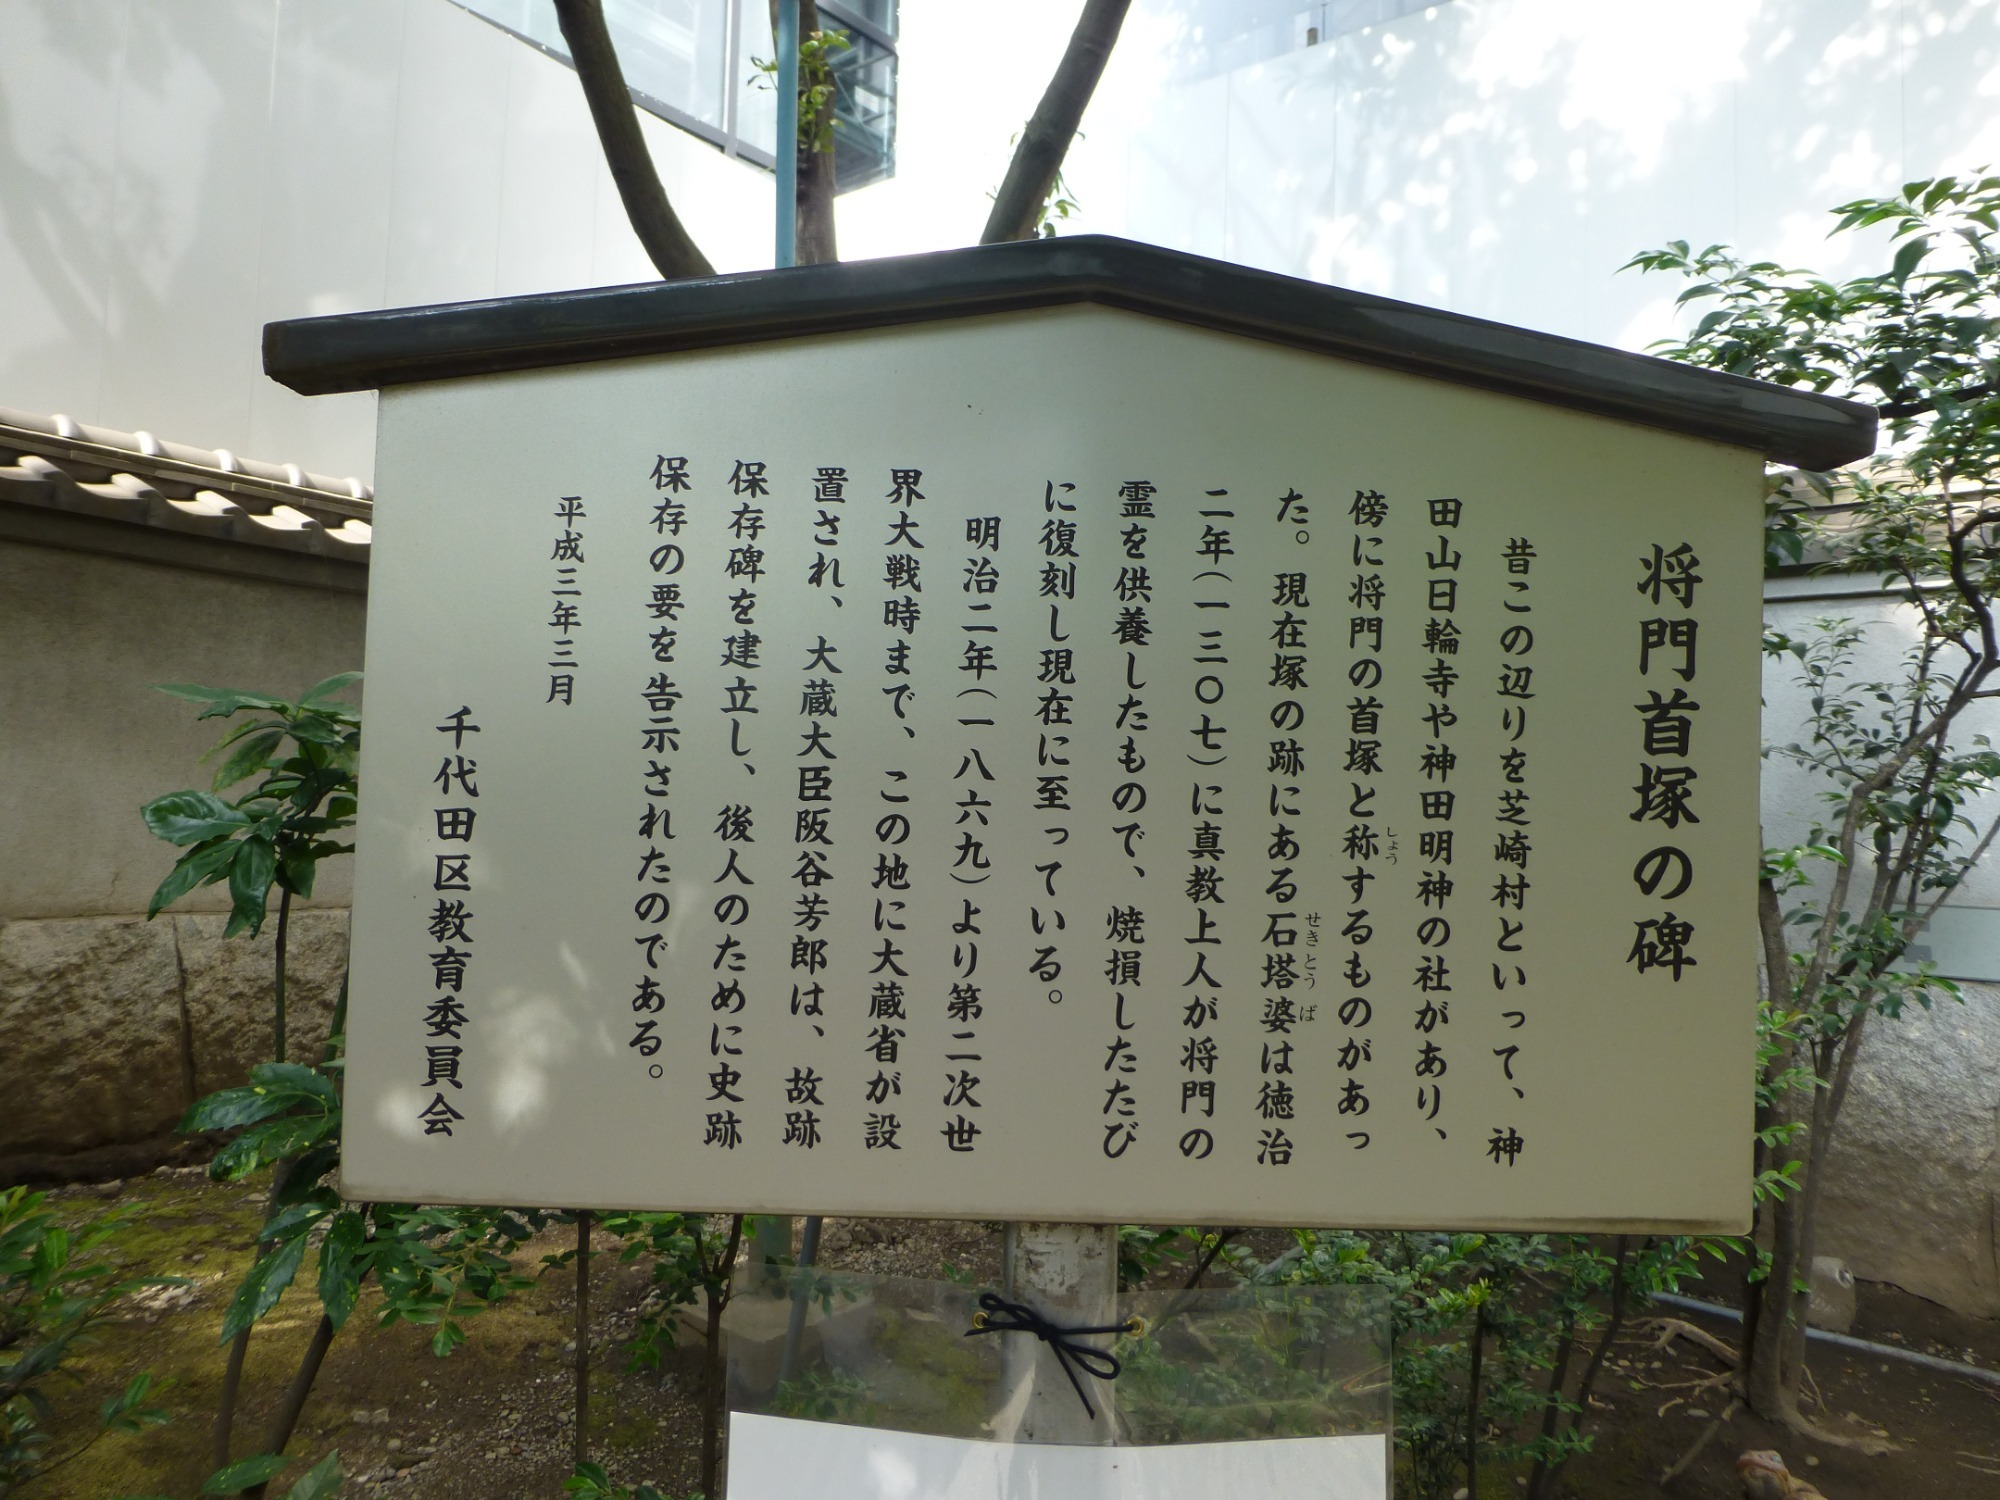 将門首塚の碑
昔この辺りを芝崎村といって、神
田山日輪寺や神田明神の社があり、
傍に将門の首塚と称するものがあっ
しょう
た。現在塚の跡にある石塔婆は徳治
せきとうば
二年(一三〇七)に真教上人が将門の
霊を供養したもので、焼損したたび
に復刻し現在に至っている。
明治二年(一八六九)より第二次世
界大戦時まで、この地に大蔵省が設
置され、大蔵大臣阪谷芳郎は、故跡
保存碑を建立し、後人のために史跡
保存の要を告示されたのである。
平成三年三月
千代田区教育委員会